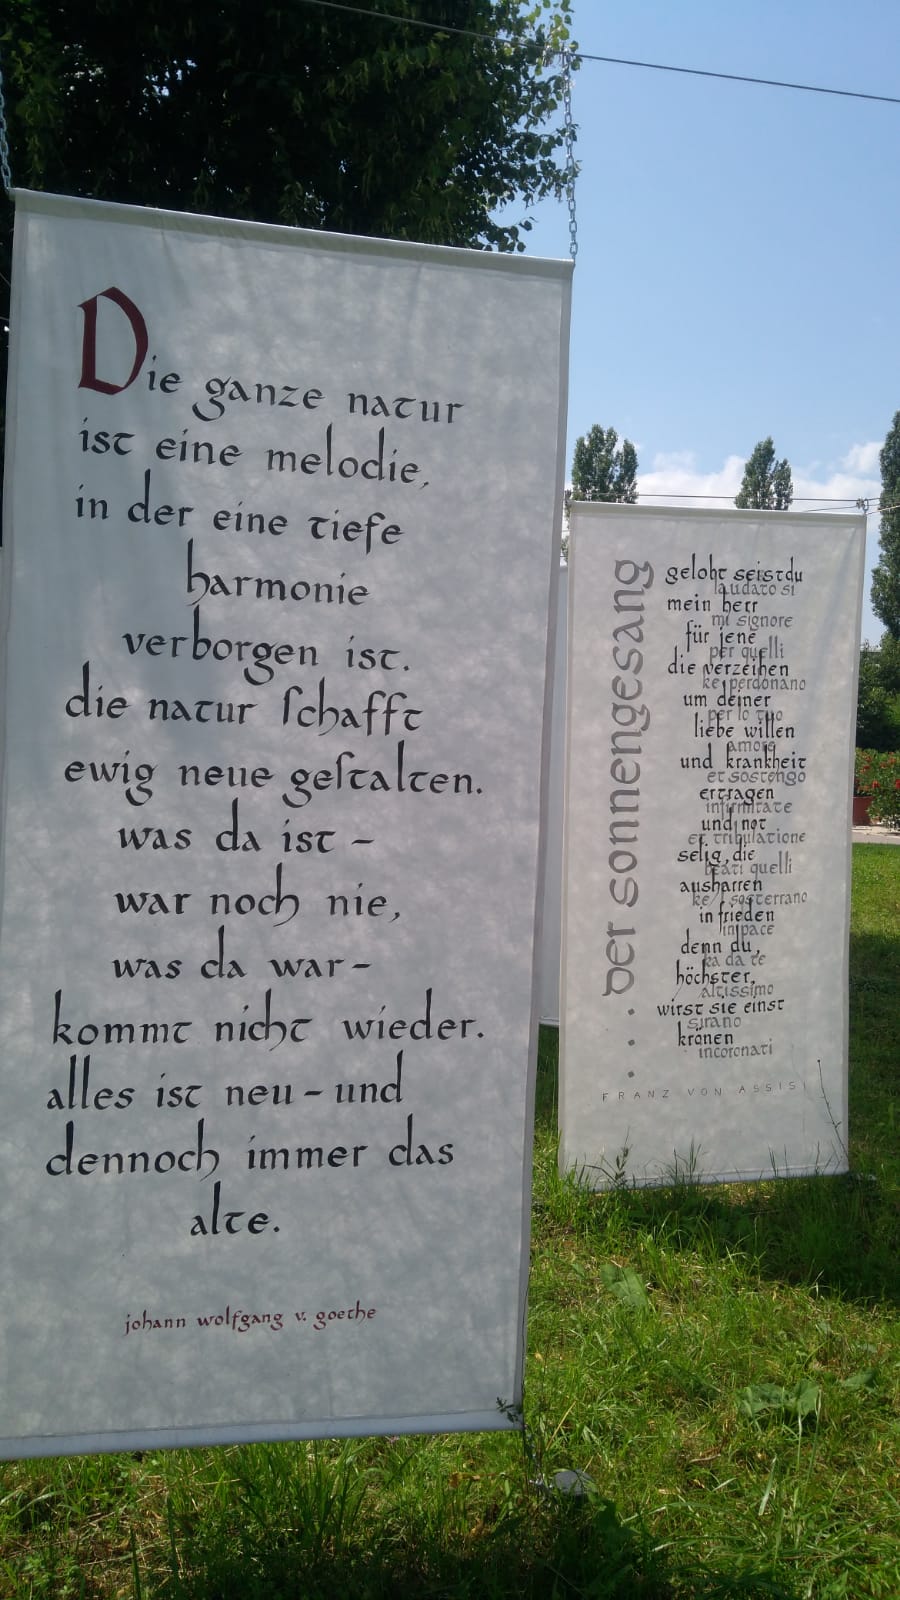 Die ganze natur
ist eine melodie,
in der eine tiefe
harmonie
verborgen ist.
die natur ſchafft
ewig neue geſtalten.
was da ist –
war noch nie,
was da war –
kommt nicht wieder.
alles ist neu – und
dennoch immer das
alte.
johann wolfgang v. goethe
der sonnengesang
gelobt seist du
laudato si
mein herr
mi signore
für jene
per quelli
die verzeihen
ke perdonano
um deiner
per lo tuo
liebe willen
amore
und krankheit
et sostengo
ertragen
infirmitate
und not
et tribulatione
selig, die
beati quelli
ausharren
ke / sosterrano
in frieden
in pace
denn du,
ka da te
höchster,
altissimo
wirst sie einst
sirano
krönen
incoronati
FRANZ VON ASSISI